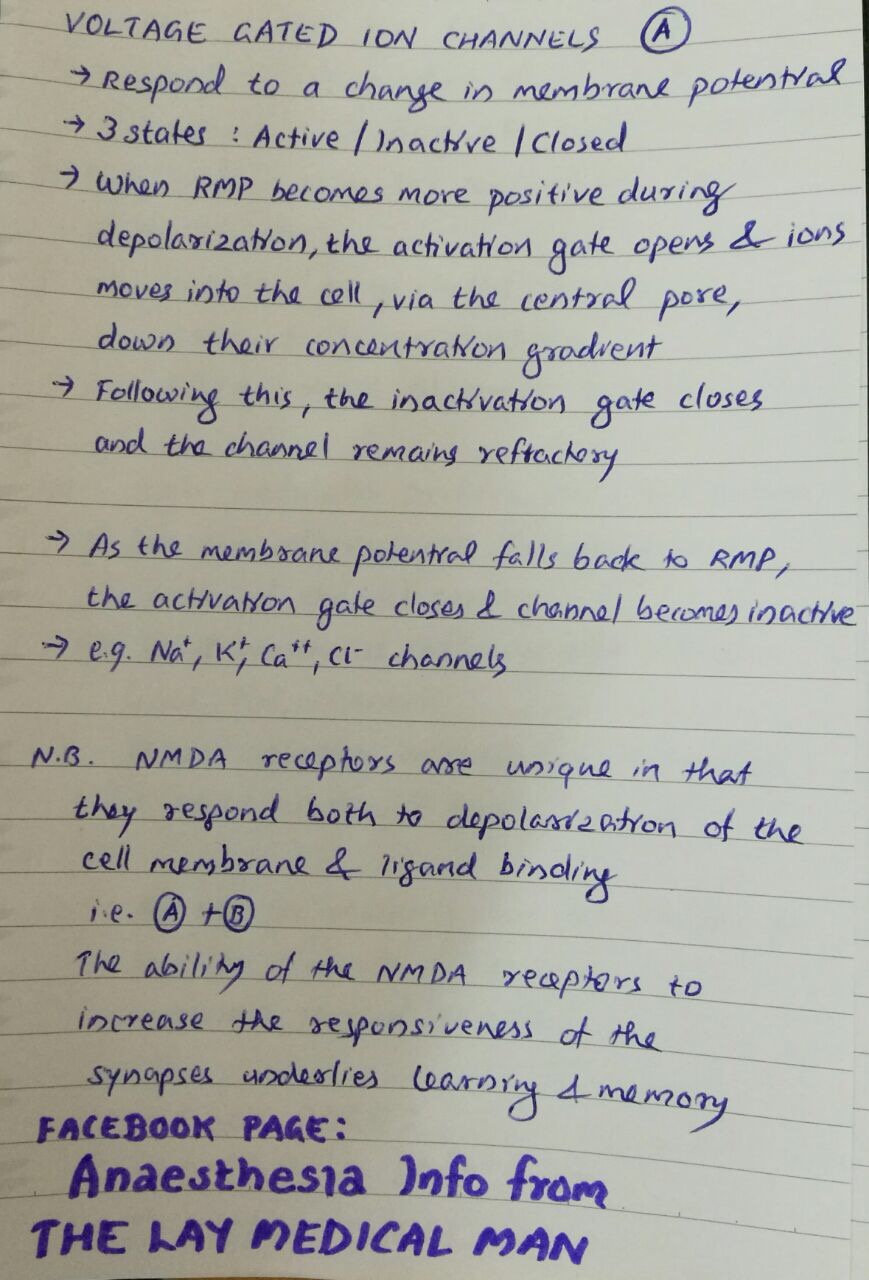 VOLTAGE GATED ION CHANNELS Ⓐ
→ Respond to a change in membrane potential
→ 3 states : Active / Inactive / Closed
→ When RMP becomes more positive during
depolarization, the activation gate opens & ions
moves into the cell, via the central pore,
down their concentration gradient
→ Following this, the inactivation gate closes
and the channel remains refractory
→ As the membrane potential falls back to RMP,
the activation gate closes & channel becomes inactive
→ e.g. Na⁺, K⁺, Ca⁺⁺, Cl⁻ channels
N.B. NMDA receptors are unique in that
they respond both to depolarization of the
cell membrane & ligand binding
i.e. Ⓐ + Ⓑ
The ability of the NMDA receptors to
increase the responsiveness of the
synapses underlies learning & memory
FACEBOOK PAGE:
Anaesthesia Info from
THE LAY MEDICAL MAN